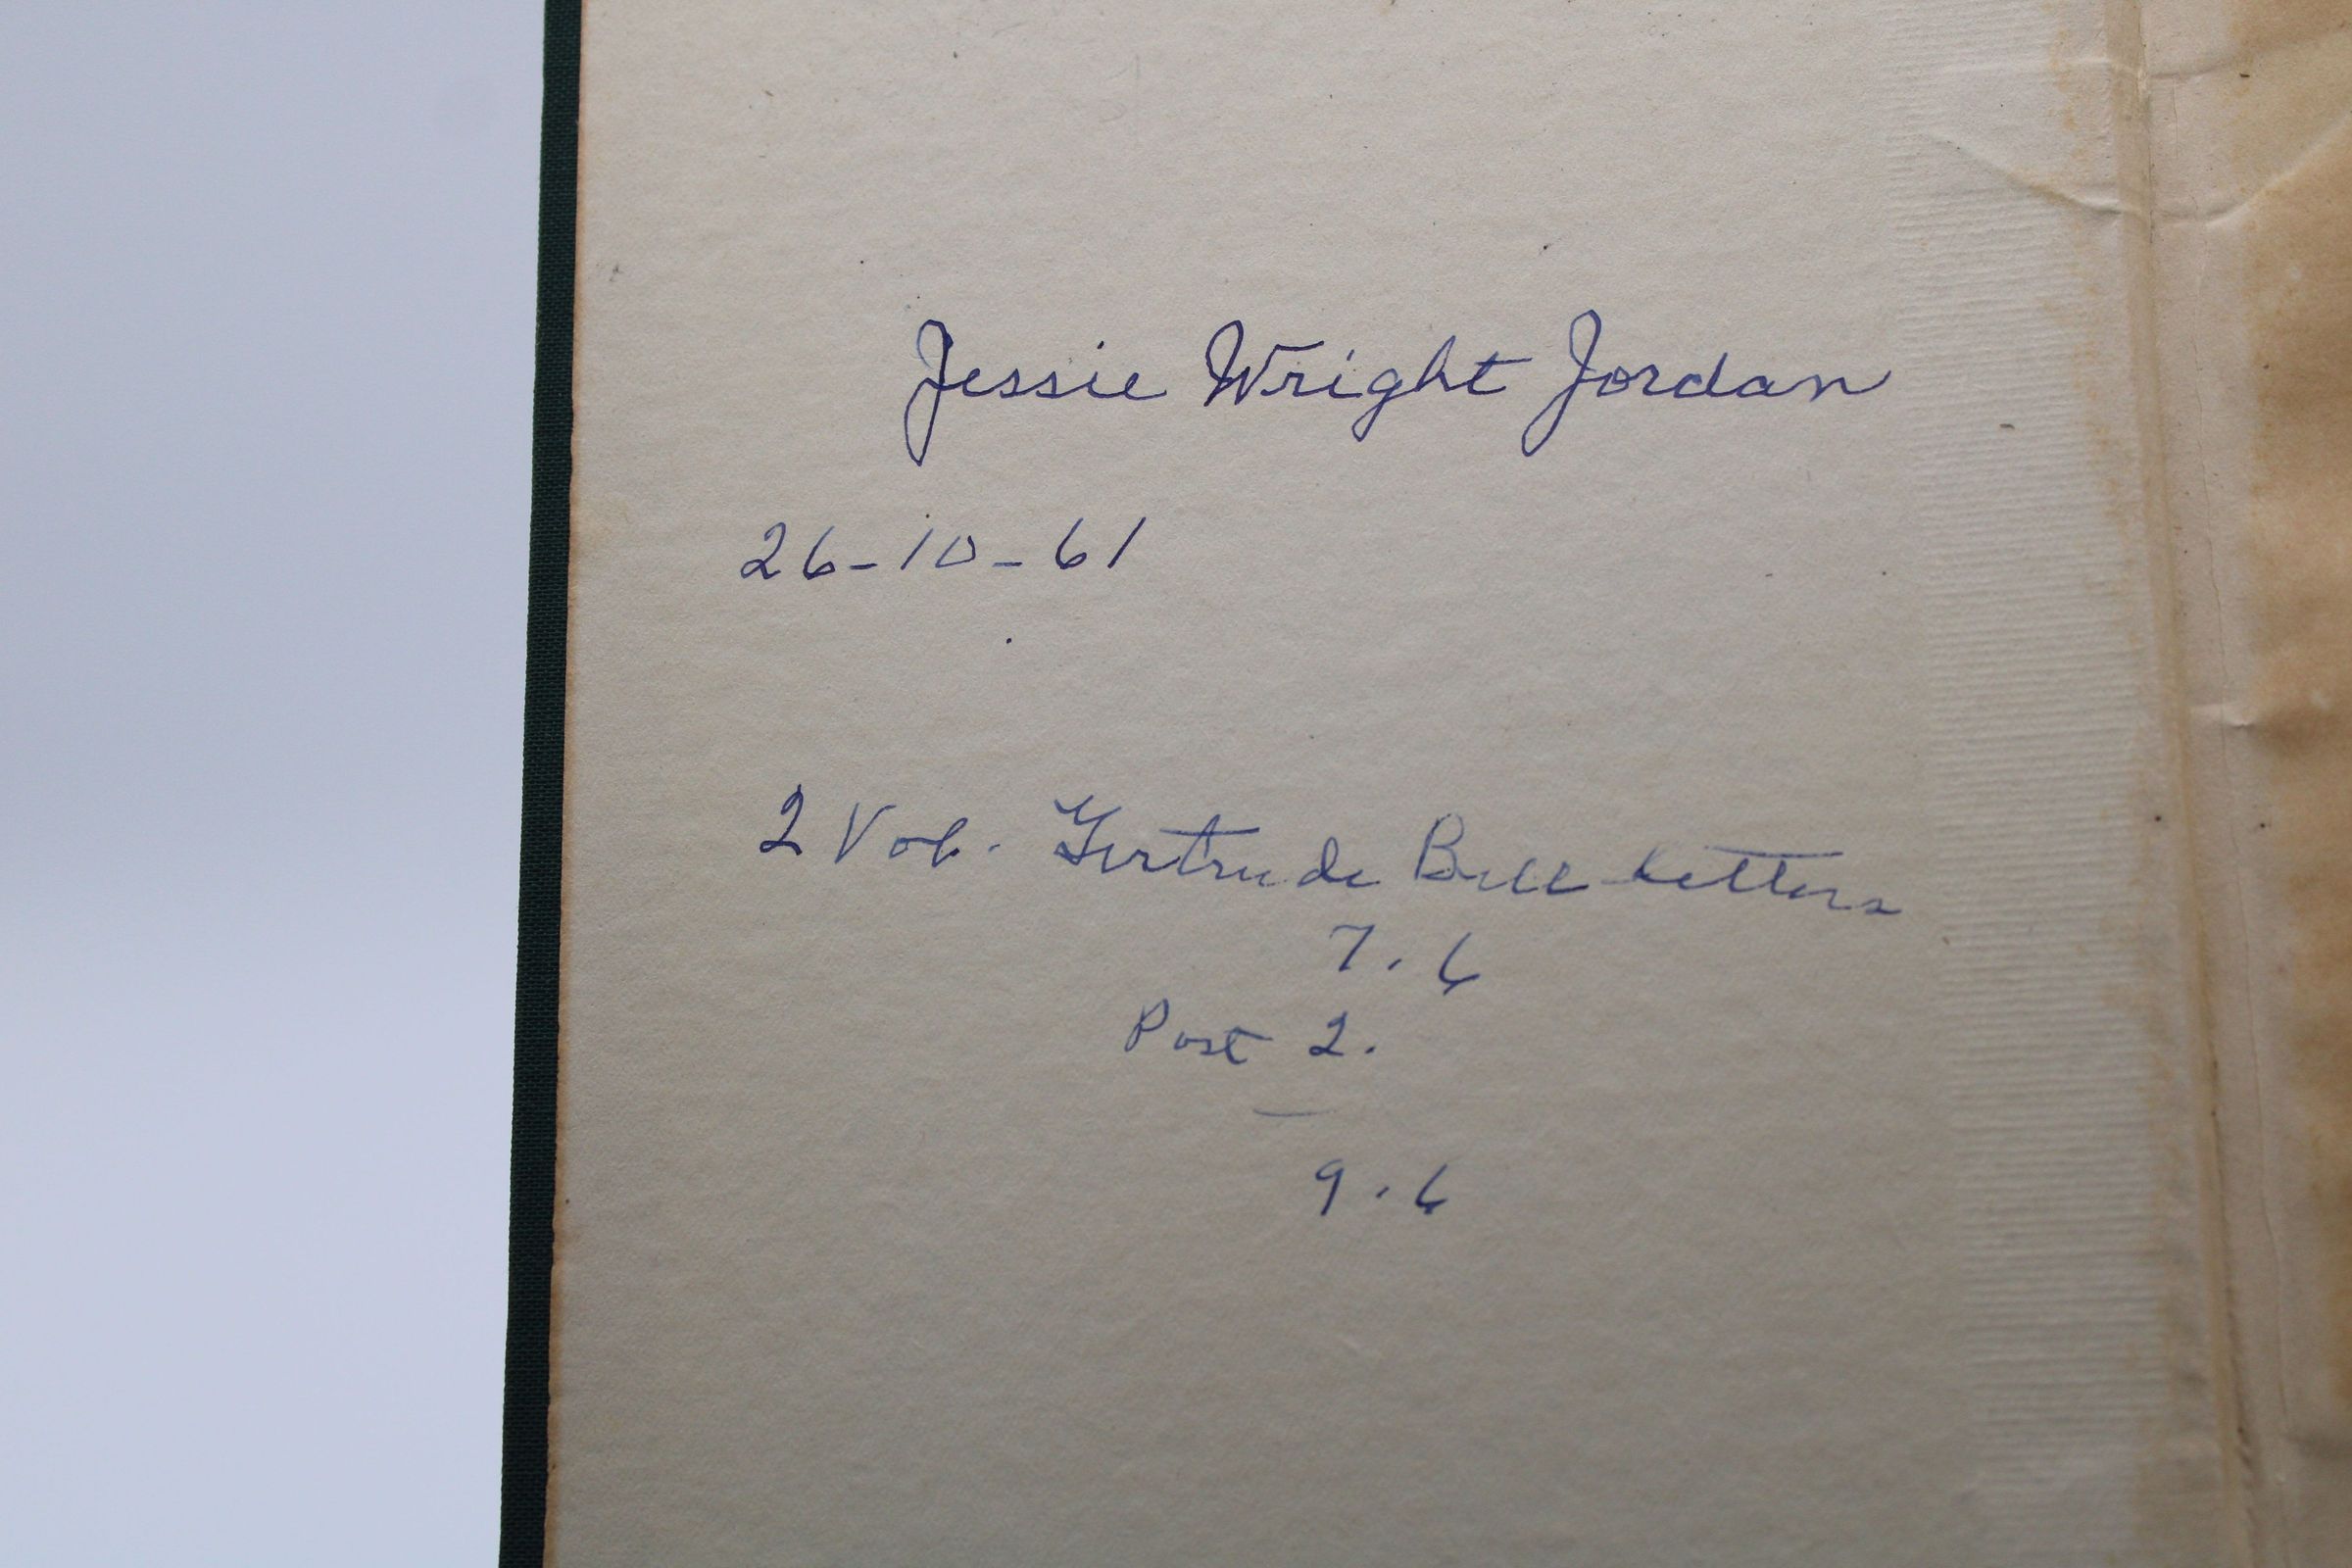 Jessie Wright Jordan
26-10-61
2 Vol. Gertrude Bell Letters
7.6
Post 2.
9.6